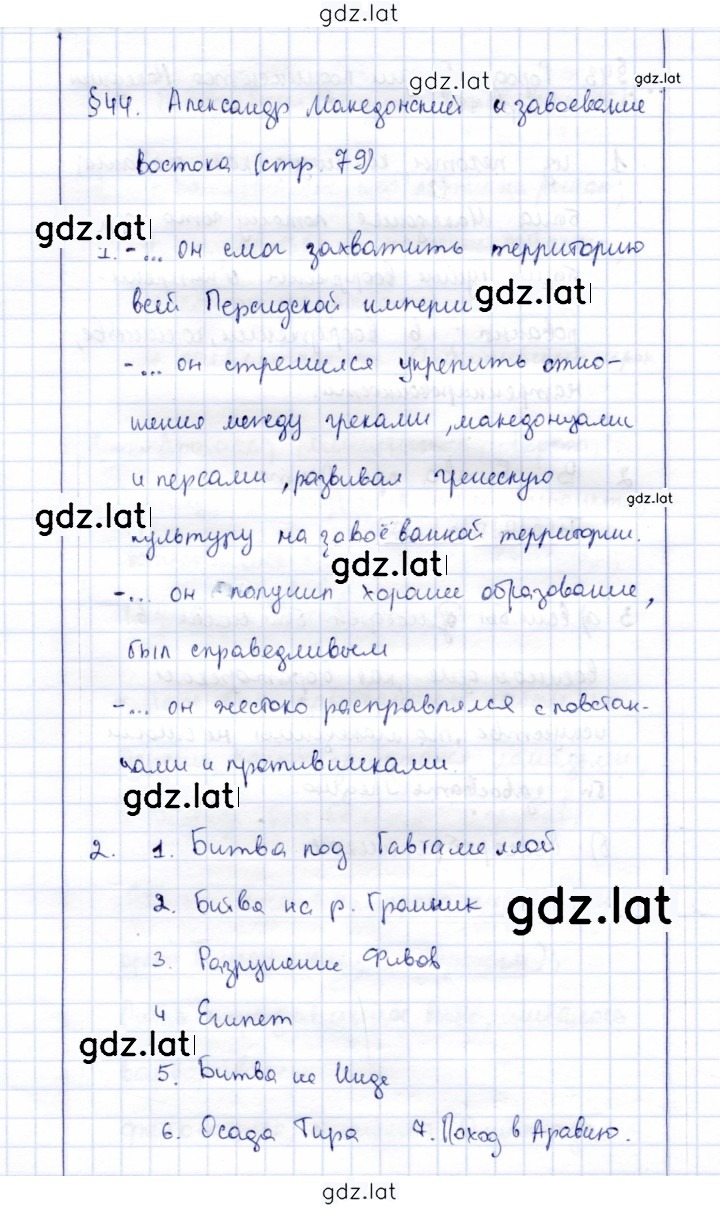 gdz.lat
gdz.lat
gdz.lat
§44. Александр Македонский и завоевание
Востока (стр 79)
gdz.lat
1. -... он смог захватить территорию
всей Персидской империи gdz.lat
-... он стремился укрепить отно-
шения между греками, македонцами
и персами, развивал греческую
gdz.lat
gdz.lat
культуру на завоёванной территории.
gdz.lat
-... он получил хорошее образование,
был справедливым
-... он жестоко расправлялся с повстан-
цами и противниками.
gdz.lat
2. 1. Битва под Гавгамеллой
2. Битва на р. Граник gdz.lat
3. Разрушение Фивов
4 Египет
gdz.lat
5. Битва не Инде
6. Осада Тира 7. Поход в Аравию.
gdz.lat